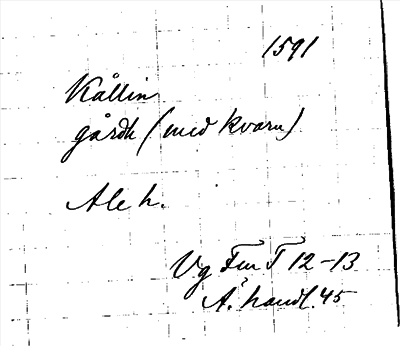 1591
Kållin
gårdh (med kvarn)
Ale h.
Vg Fm T 12-13
Å. handl. 45